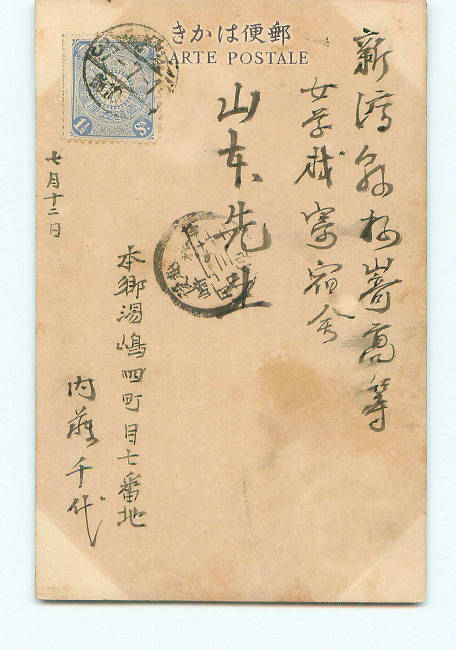 きかは便郵
CARTE POSTALE
新潟縣柏崎高等
女学校寄宿舎
山本先生
七月十二日
本郷湯嶋四町目七番地
内藤千代
1½ Sn